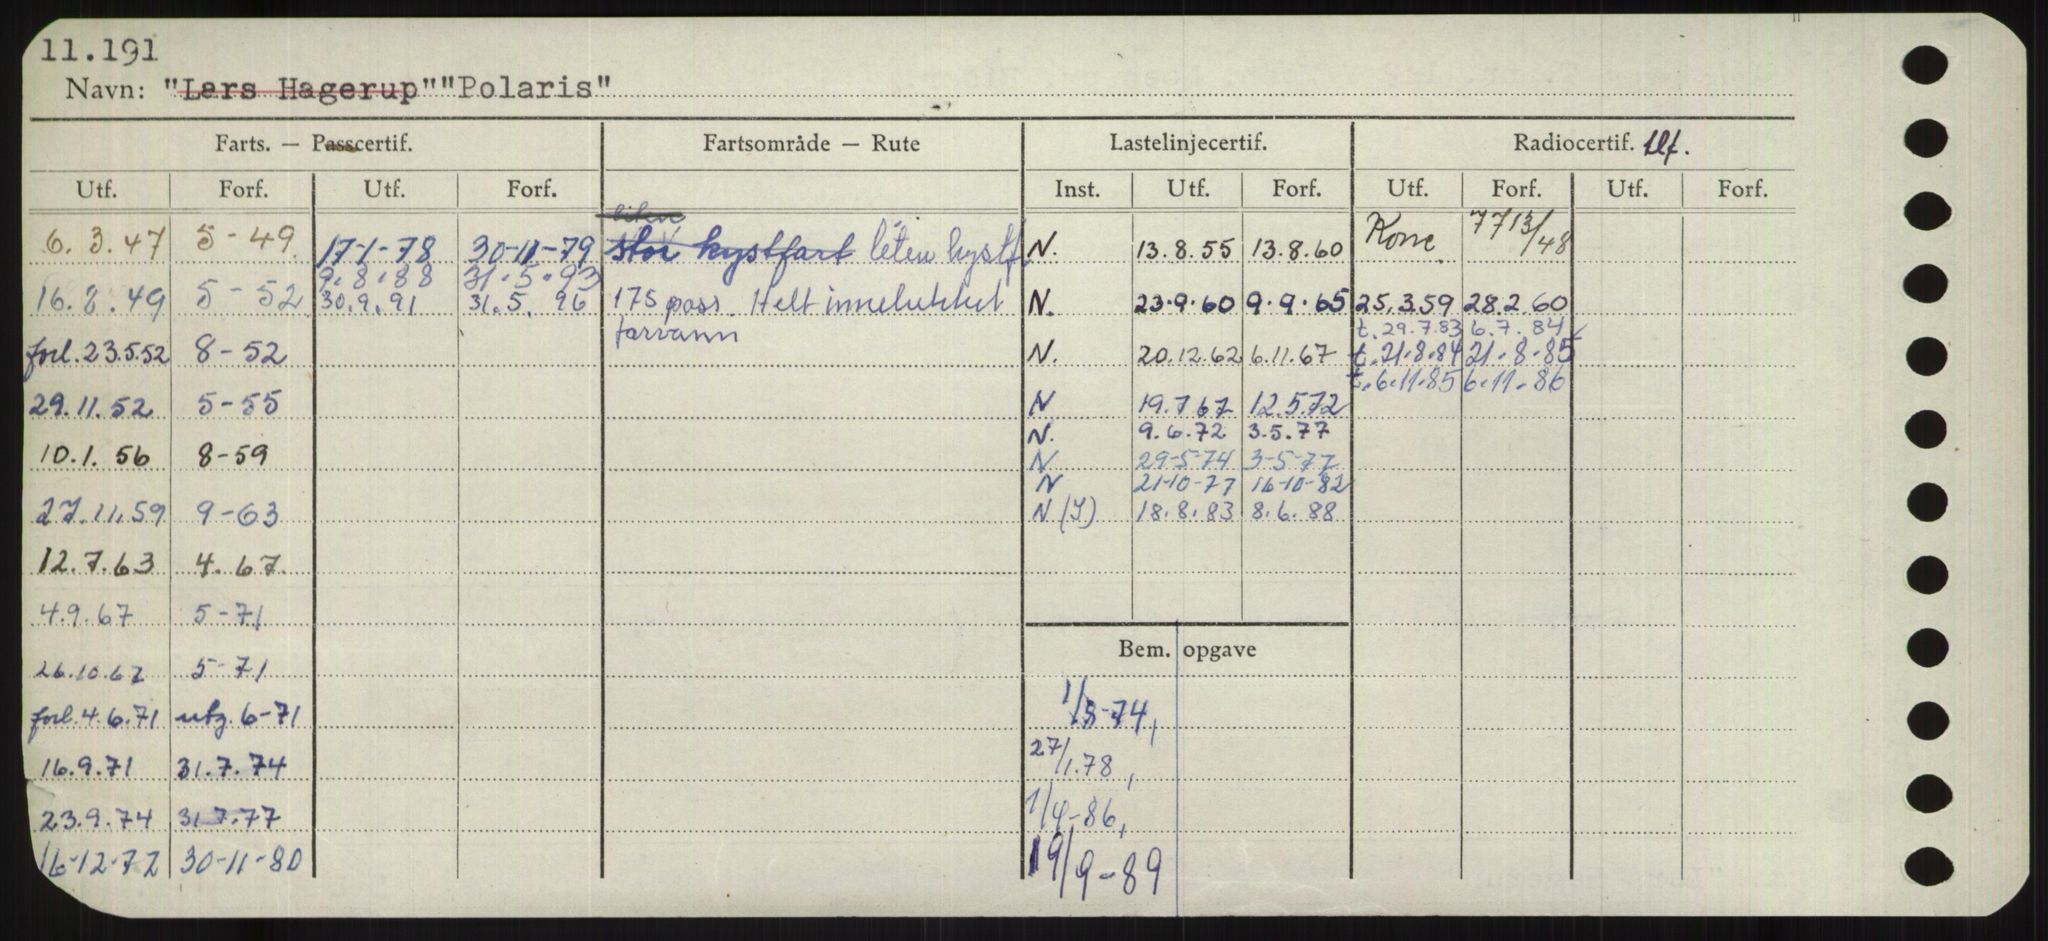 11.191
Navn: "Lars Hagerup""Polaris"
Farts. — Passcertif. Fartsområde — Rute Lastelinjecertif. Radiocertif. tlf.
Utf. Forf. Utf. Forf. Inst. Utf. Forf. Utf. Forf. Utf. Forf.
liten
6.3.47 5-49 17-1-78 30-11-79 stor kystfart liten kystf N. 13.8.55 13.8.60 77 13/48
9.8.88 31.5.93
16.8.49 5-52 30.9.91 31.5.96 175 pass. Helt innelukket N. 23.9.60 9.9.65 25.3.59 28.2.60
farvann t.29.7.83 6.7.84
forl.23.5.52 8-52 N. 20.12.62 6.11.67 t.21.8.84 21.8.85
t.6.11.85 6.11.86
29.11.52 5-55 N 19.7.67 12.5.72
N. 9.6.72 3.5.77
10.1.56 8-59 N 29-5-74 3-5-77
N 21-10-77 16-10-82
27.11.59 9-63 N(I) 18.8.83 8.6.88
12.7.63 4.67
4.9.67 5-71
Bem. opgave
26.10.67 5-71
forl.4.6.71 utg.6-71 1/3-74,
16.9.71 31.7.74 27/1.78,
23.9.74 31.7.77 1/4-86,
16-12-77 30-11-80 19/9-89